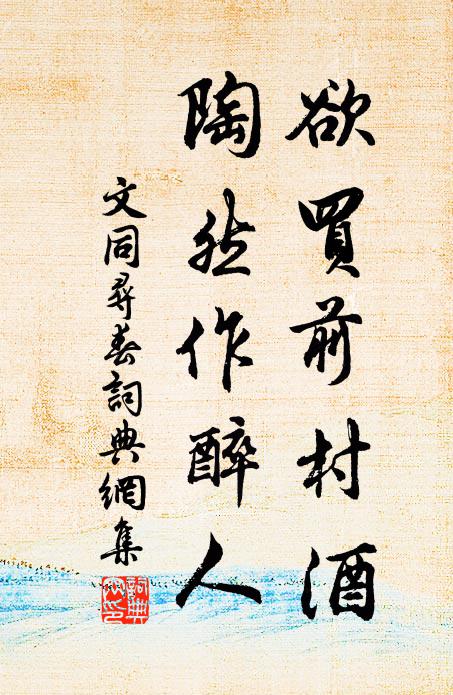 欲買前村酒
陶然作醉人
文同尋春詞典網集